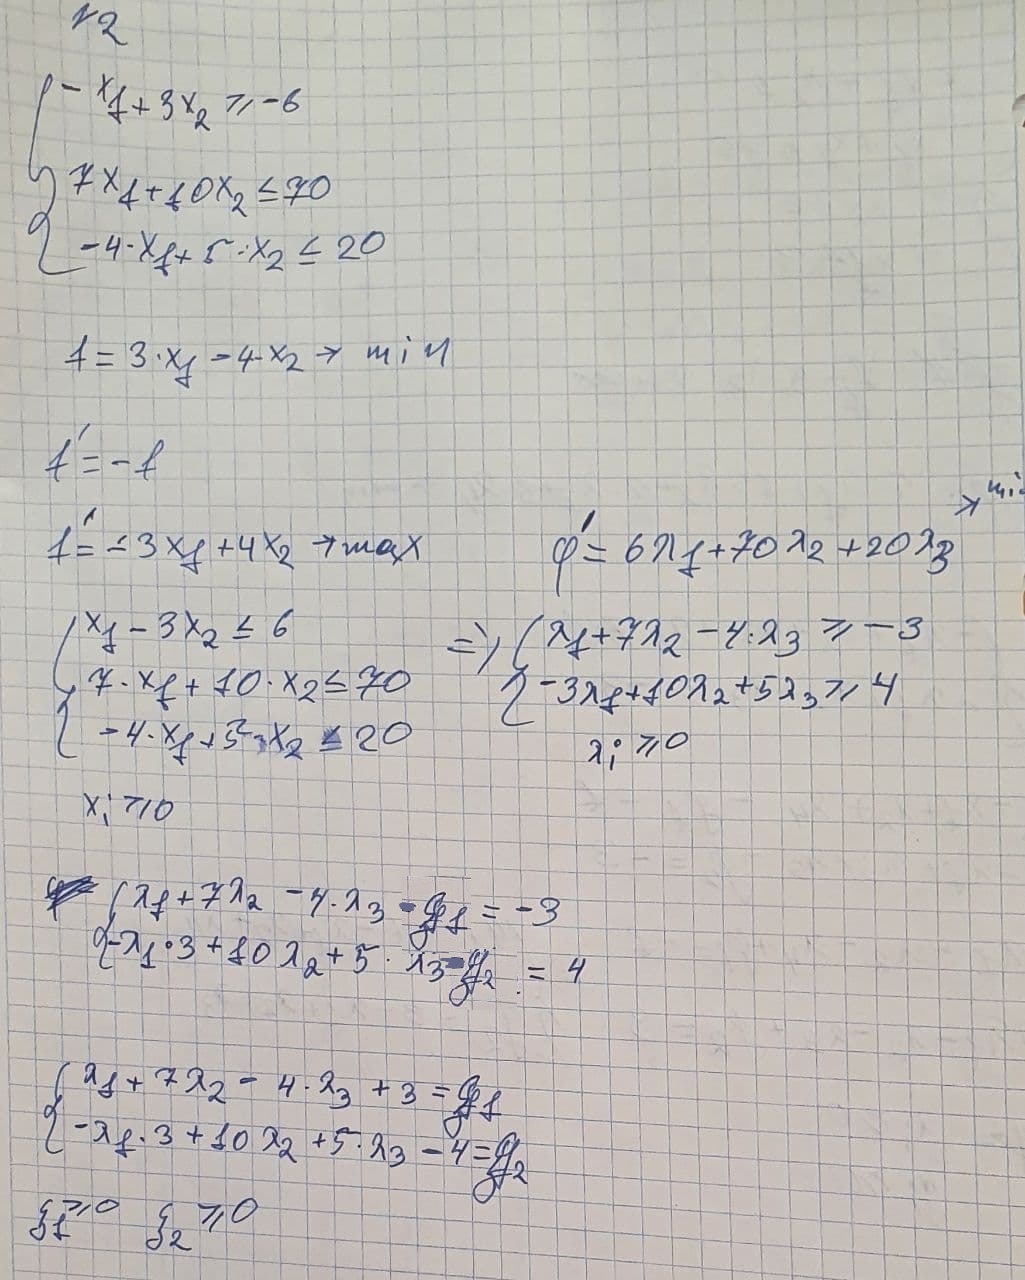 №2
-x₁+3x₂ ⩾ -6
7x₁+10x₂ ≤ 70
-4·x₁+5·x₂ ≤ 20
f = 3·x₁ - 4·x₂ → min
f' = -f
f' = -3x₁+4x₂ → max
φ' = 6λ₁+70λ₂+20λ₃ → min
x₁ - 3x₂ ≤ 6
7·x₁+10·x₂ ≤ 70
-4·x₁+5·x₂ ≤ 20
xᵢ ⩾ 0
=> λ₁+7λ₂ - 4·λ₃ ⩾ -3
-3λ₁+10λ₂+5λ₃ ⩾ 4
λᵢ ⩾ 0
λ₁+7λ₂ - 4·λ₃ - ξ₁ = -3
-λ₁·3+10λ₂+5·λ₃ - ξ₂ = 4
λ₁+7λ₂ - 4·λ₃ + 3 = ξ₁
-λ₁·3+10λ₂+5·λ₃ - 4 = ξ₂
ξ₁ ⩾ 0 ξ₂ ⩾ 0